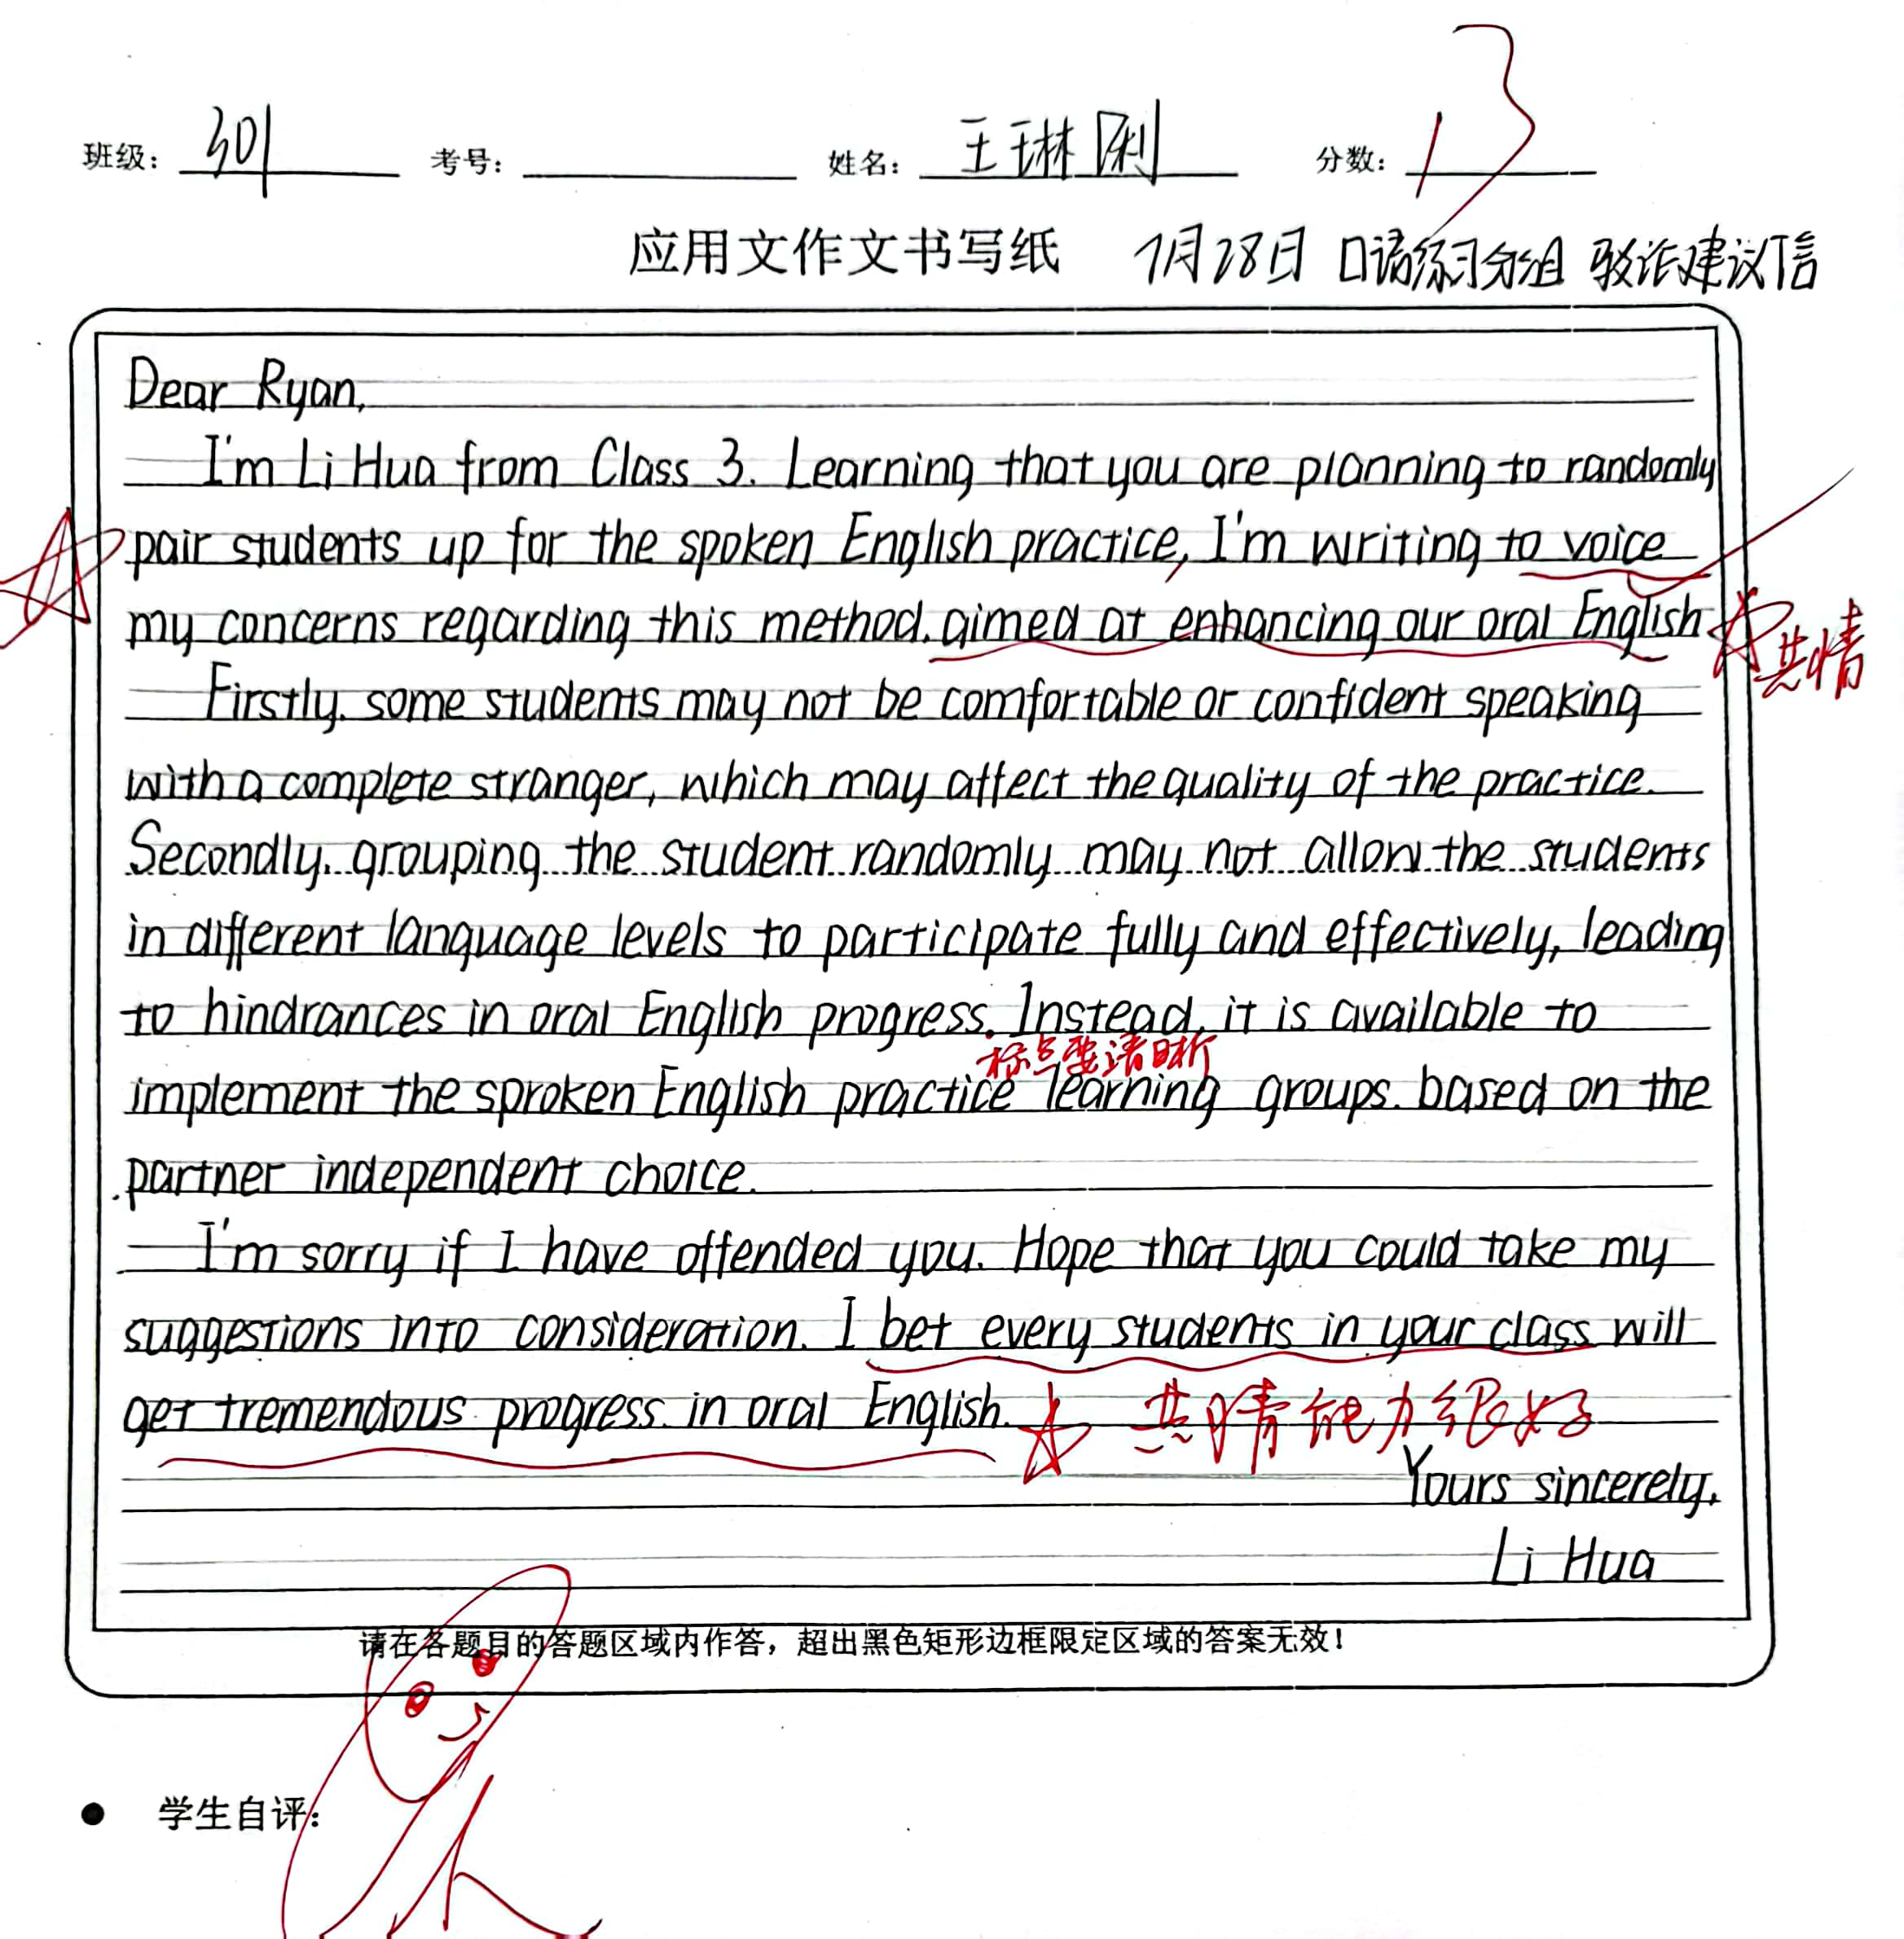 班级: 301 考号: 姓名: 王琳 分数: 13
应用文作文书写纸 1月28日 口语练习分组 建议信
Dear Ryan,
I'm Li Hua from Class 3. Learning that you are planning to randomly
pair students up for the spoken English practice, I'm writing to voice
my concerns regarding this method. aimed at enhancing our oral English
共情
Firstly, some students may not be comfortable or confident speaking
with a complete stranger, which may affect the quality of the practice.
Secondly, grouping the student randomly may not allow the students
in different language levels to participate fully and effectively, leading
to hindrances in oral English progress. Instead, it is available to
标点要清晰
implement the sproken English practice learning groups. based on the
partner independent choice.
I'm sorry if I have offended you. Hope that you could take my
suggestions into consideration. I bet every students in your class will
get tremendous progress in oral English.
共情能力很好
Yours sincerely,
Li Hua
请在各题目的答题区域内作答，超出黑色矩形边框限定区域的答案无效！
● 学生自评：